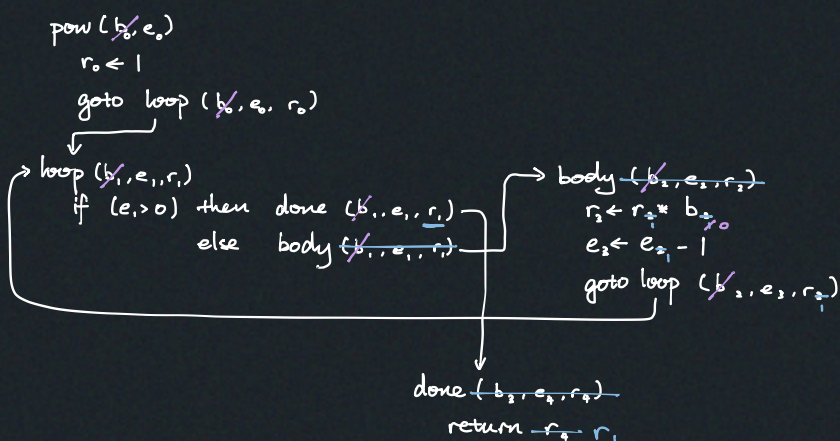 pow (b₀, e₀)
r₀ ← 1
goto loop (b₀, e₀, r₀)
loop (b₁, e₁, r₁)
if (e₁>0) then done (b₁, e₁, r₁)
else body (b₁, e₁, r₁)
body (b₂, e₂, r₂)
r₃ ← r₂ ₁ * b₂ ₀
e₃ ← e₂ ₁ - 1
goto loop (b₂, e₃, r₃ ₁)
done (b₃, e₄, r₄)
return r₄ r₁